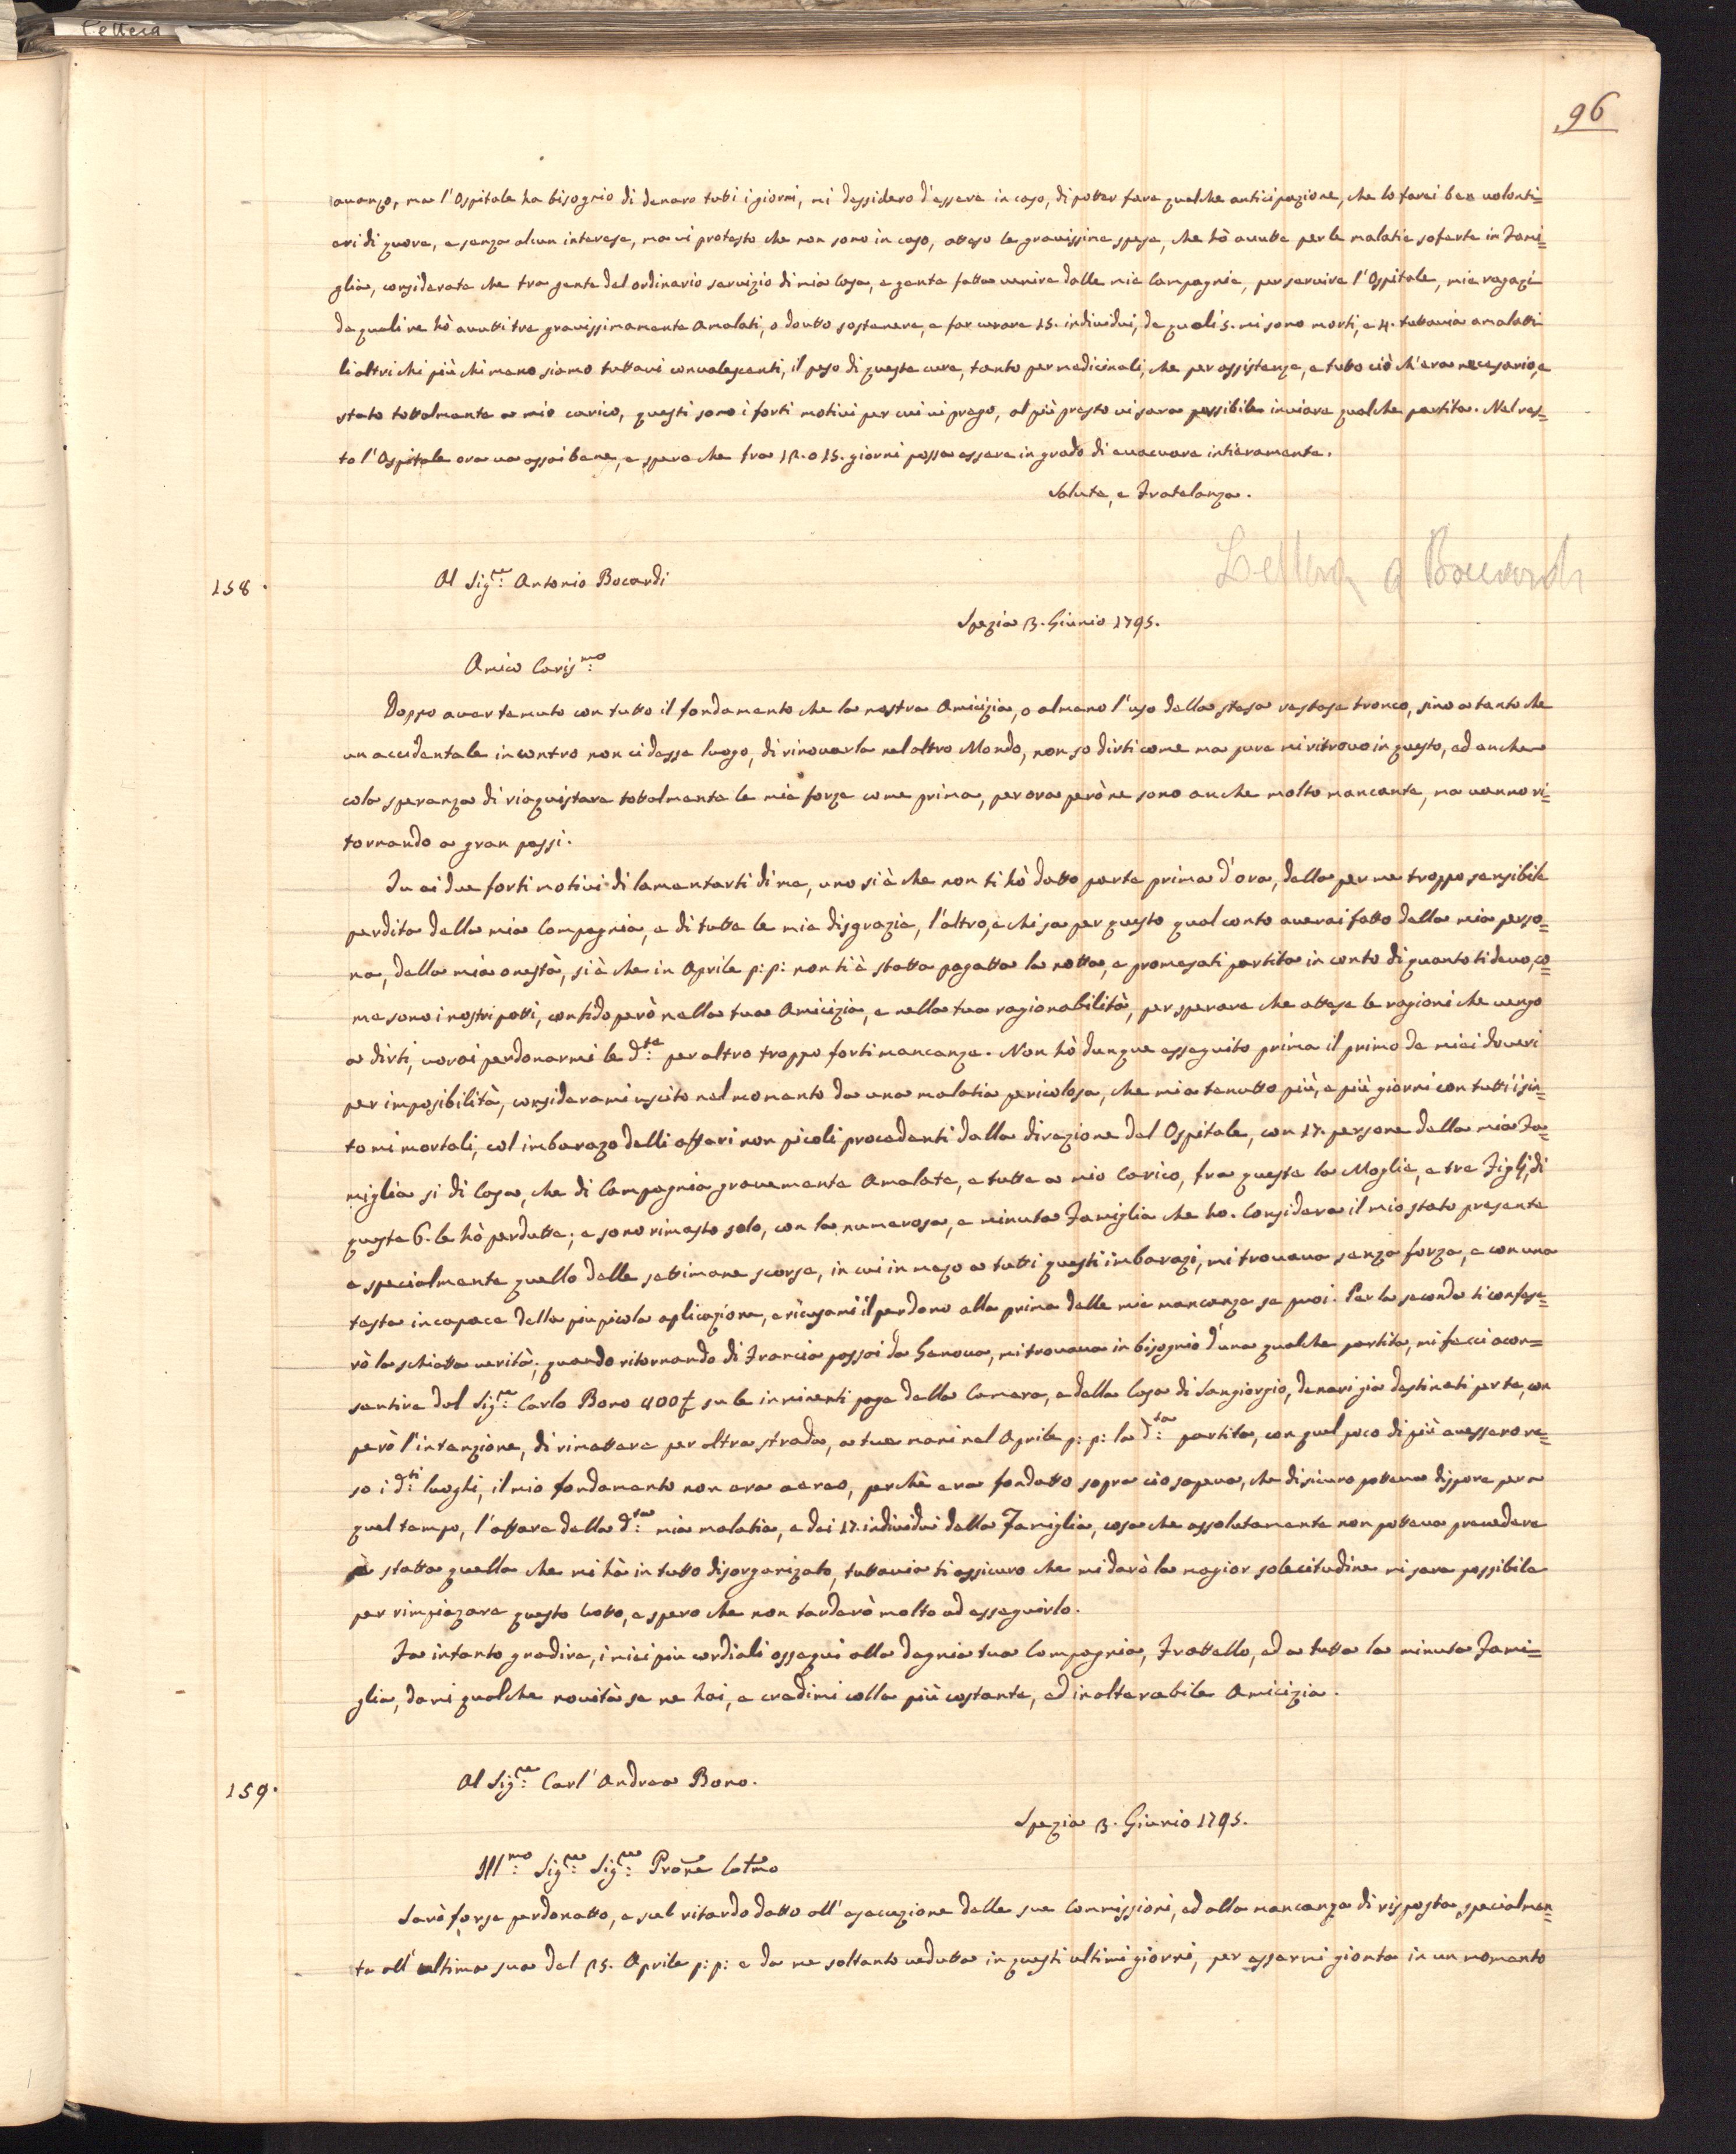 Lettera
96
auanzo, ma l'Ospitale ha bisognio di denaro tutti i giorni, mi dessidero d'essere in caso, di potter fare qualche anticipazione, che lo farei ben uolonti=
eri di quore, e senza alcun interese, ma ui protesto che non sono in caso, atteso le grauissime spese, che hò auutte per le malatie soferte in Fami=
glia, considerate che tra gente del ordinario seruizio di mia Casa, e gente fatta uenire dalle mie Campagnie, per seruire l'Ospitale, mie ragazi
de quali ne hò auutti tre grauissimamente Amalati, o doutto sostenere, e far curare 15. indiuidui, de quali 5. mi sono morti, e 4. tuttauia amalatti
li altri chi più chi meno siamo tuttaui conualescenti, il peso di queste cure, tanto per medicinali, che per assistenze, e tutto ciò ch'era necesario, e
stato tottalmente a mio carico, questi sono i forti motiui per cui ui prego, al più presto ui sara possibile inuiare qualche partita. Nel res=
to l'Ospitale ora ua assai bene, e spero che fra 12. o 15. giorni possa essere in grado di euacuare intieramente.
Salute, e Fratelanza.
Lettera a Boccardi
158.
Al Sig.re Antonio Bocardi
Spezia 3. Giunio 1795.
Amico Caris.mo
Doppo auer temuto con tutto il fondamento che la nostra Amicizia, o almeno l'uso della stesa restase tronco, sino a tanto che
un accidentale incontro non ci desse luogo, di rinouarla nel altro Mondo, non so dirti come ma pure mi ritrouo in questo, ed anche
cola speranza di riaquistare tottalmente le mie forze come prima, per ora però ne sono anche molto mancante, ma uanno ri=
tornando a gran passi.
Tu ai due forti motiui di lamentarti di me, uno si è che non ti hò datto parte prima d'ora, della per me troppo sensibile
perdita della mia Compagnia, e di tutte le mie disgrazie, l'altro, e chi sa per questo qual conto auerai fatto della mia perso=
na, della mia onestà, si è che in Aprile p: p: non ti è statta pagatta la notta, e promesati partita in conto di quanto ti deuo, co=
me sono i nostri patti, confido però nella tua Amicizia, e nella tua ragionabilità, per sperare che attese le ragioni che uengo
a dirti, uorai perdonarmi le d.te per altro troppo forti mancanze. Non hò dunque esseguito prima il primo de miei doueri
per imposibilità, considerami uscito nel momento da una malatia pericolosa, che mi a tenutto più, e più giorni con tutti i sin=
tomi mortali, col imbarazo delli affari non picoli procedenti dalla direzione del Ospitale, con 17. persone della mia Fa=
miglia si di Casa, che di Campagnia grauemente Amalate, e tutte a mio Carico, fra queste la Moglie, e tre Figlj, di
queste 6. le hò perdutte; e sono rimasto solo, con la numerosa, e minuta Famiglia che ho. Considera il mio stato presente
e specialmente quello delle settimane scorse, in cui in mezo a tutti questi imbarazi, mi trouaua senza forze, e con una
testa incapace della piu picola aplicazione, e ricusami il perdono alla prima delle mie mancanze se puoi. Per la seconda ti confese=
rò la schietta uerità; quando ritornando di Francia passai da Genoua, mi trouaua in bisognio d'una qualche partita, mi feci acon=
sentire dal Sig.re Carlo Bono 400 £ su le inminenti page della Camera, e della Casa di Sangiorgio, denari gia destinati per te, con
però l'intenzione, di rimettere per altra strada, a tue mani nel Aprile p: p: la d.ta partita, con quel poco di più auessero re=
so i d.ti luoghi, il mio fondamento non era aereo, perchè era fondatto sopra cio sapeua, che di sicuro potteua dispore per a
quel tempo, l'affare della d.ta mia malatia, e dei 17. indiuidui della Famiglia, cosa che assolutamente non potteua preuedere
è statta quella che mi hà in tutto disorganizato, tuttauia ti assicuro che mi darò la magior solecitudine mi sara possibile
per rimpiazare questo uotto, e spero che non tarderò molto ad esseguirlo.
Fa intanto gradire, i miei piu cordiali ossequi alla degnia tua Compagnia, Frattello, ed a tutta la minuta Fami=
glia, dami qualche nouità se ne hai, e credimi colla più costante, ed inalterabile Amicizia.
159.
Al Sig.re Carl'Andrea Bono.
Spezia 3. Giunio 1795.
Ill.mo Sig.re Sig.re Prone Colmo
Sarò forse perdonatto, e sul ritardo datto all'esecuzione delle sue Commissioni, ed alla mancanza di risposta, specialmen=
te all'ultima sua del 25. Aprile p: p: e da me soltanto uedutta in questi ultimi giorni, per essermi gionta in un momento